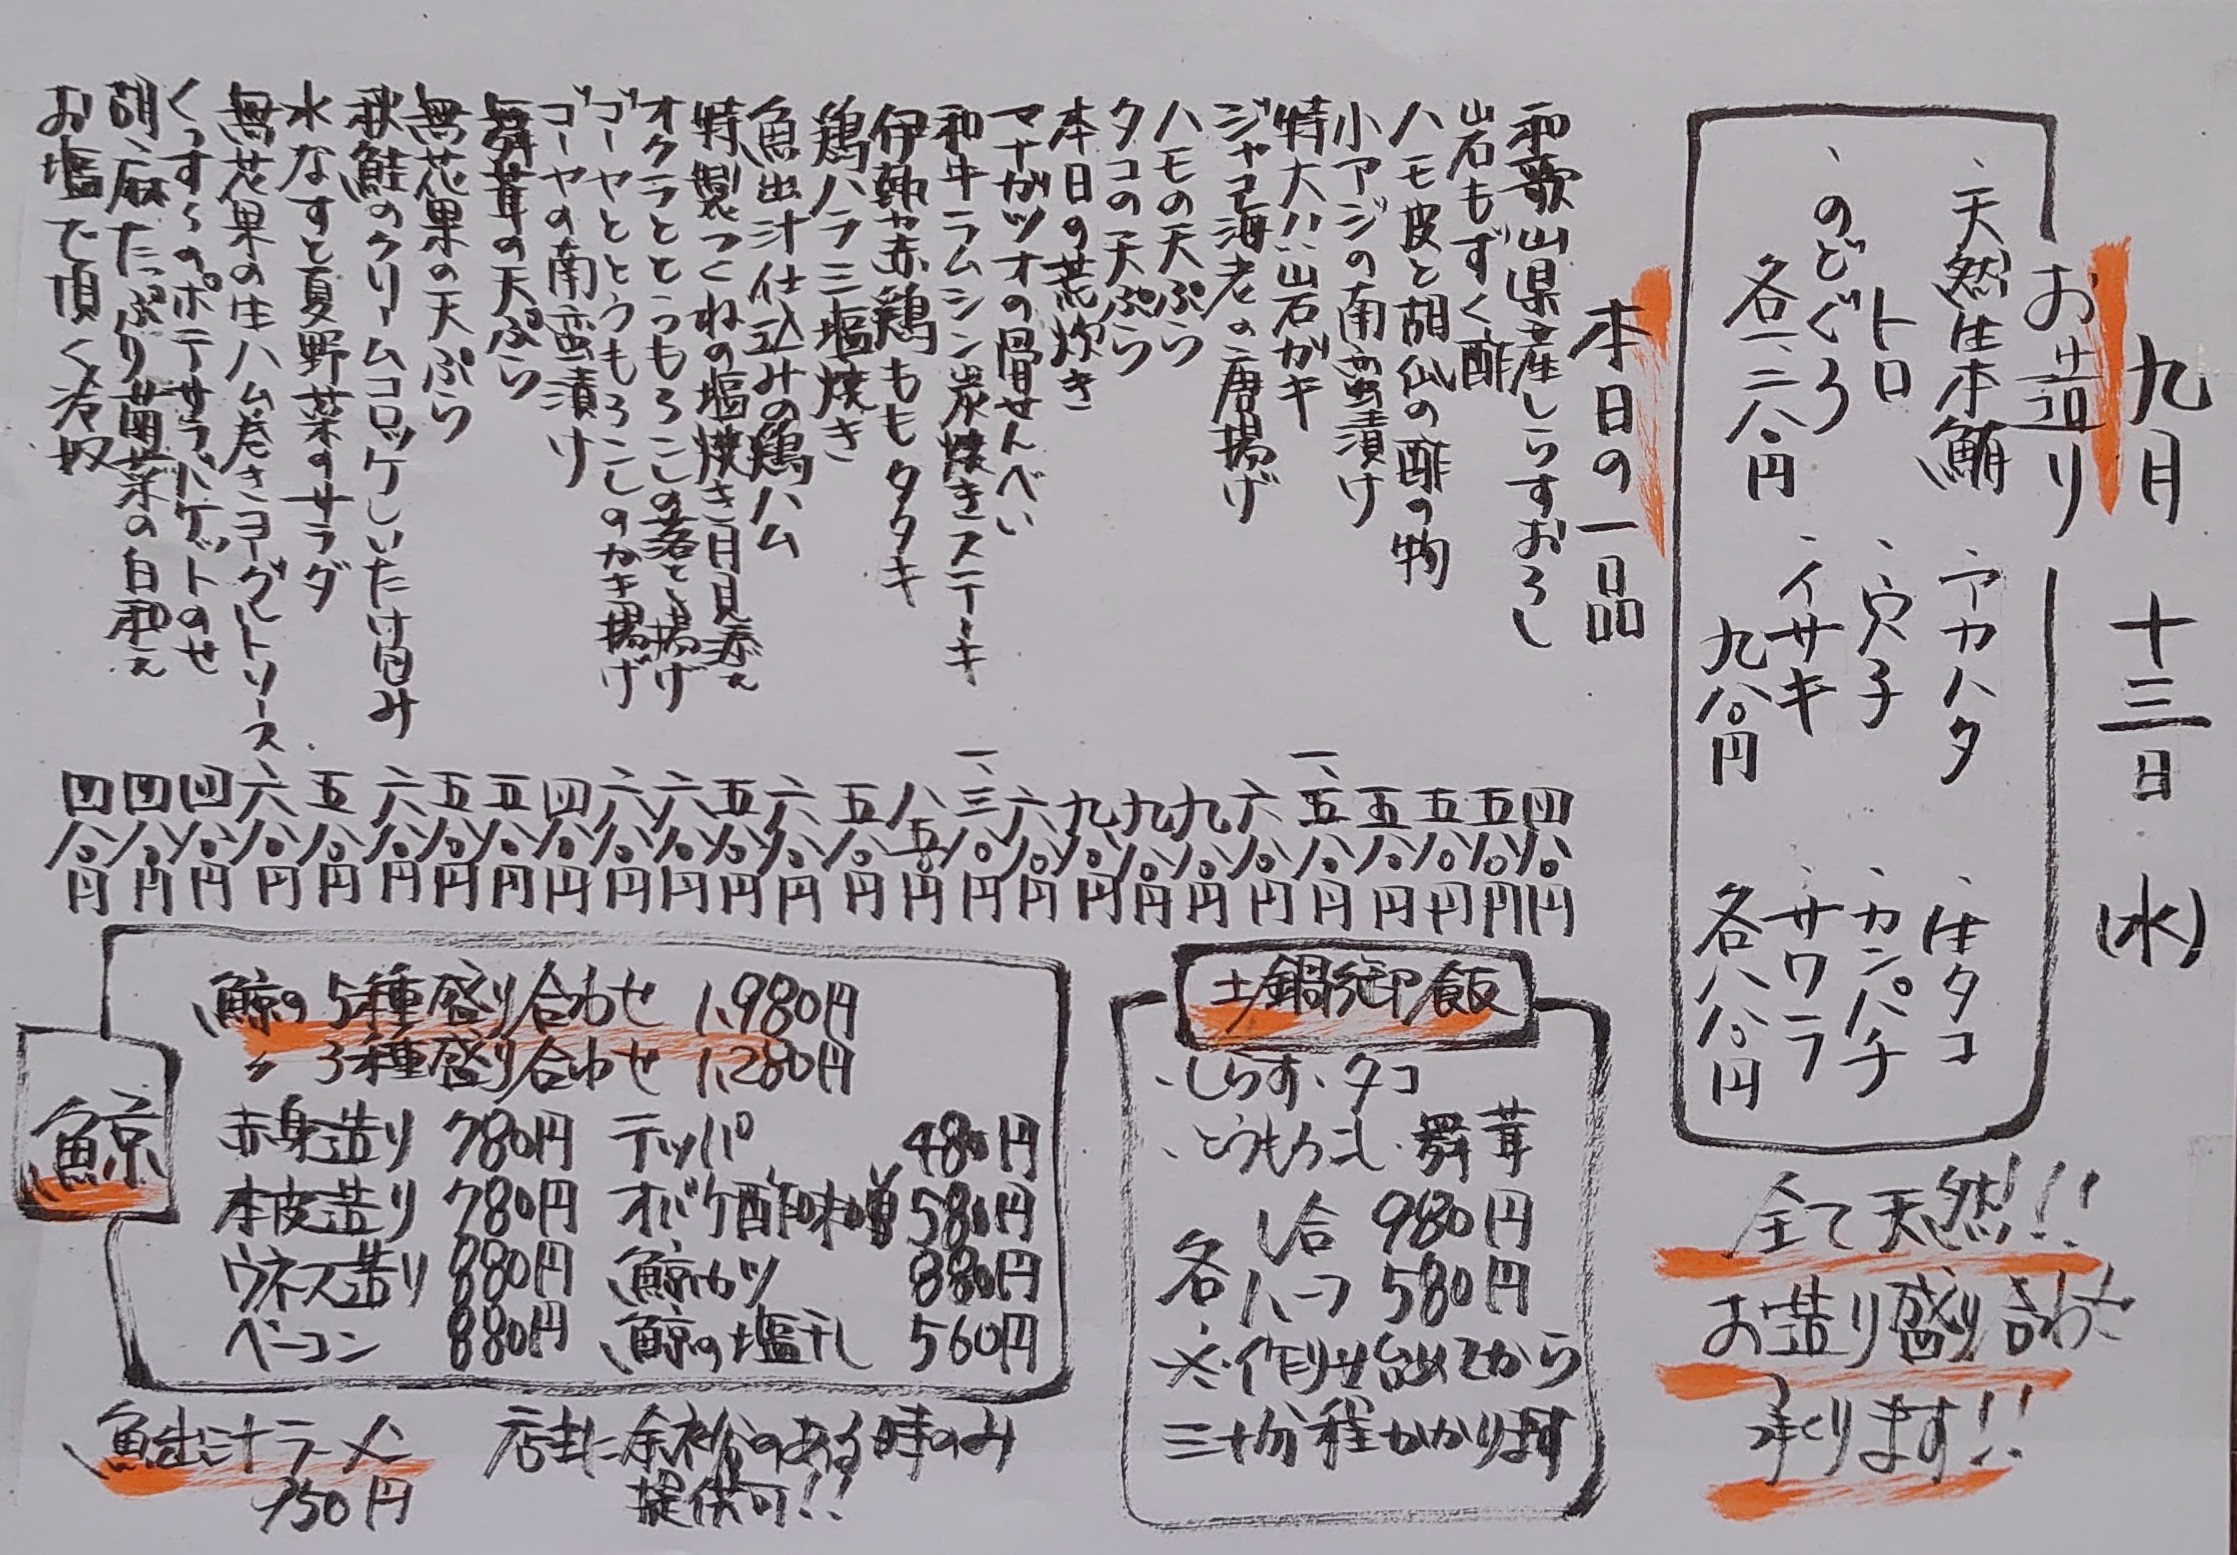 九月十三日(水)
お造り
、天然生本鮪
トロ
、のどぐろ
各一、二八〇円
、アカハタ
、穴子
、イサキ
九八〇円
、生タコ
、カンパチ
、サワラ
各八八〇円
全て天然!!
お造り盛り合わせ
承ります!!
本日の一品
和歌山県産しらすおろし 四八〇円
岩もずく酢 五八〇円
ハモ皮と胡瓜の酢の物 五八〇円
小アジの南蛮漬け 五八〇円
特大!!岩ガキ 一、五八〇円
ジャコ海老の唐揚げ 六八〇円
ハモの天ぷら 九八〇円
タコの天ぷら 九八〇円
本日の荒炊き 九八〇円
マナガツオの骨せんべい 六八〇円
和牛ラムシン炭焼きステーキ 一、三八〇円
伊勢赤鶏ももタタキ 八五〇円
鶏ハラミ塩焼き 五八〇円
魚出汁仕込みの鶏ハム 六八〇円
特製つくねの塩焼き月見添え 五八〇円
オクラととうもろこしの落とし揚げ 六八〇円
ゴーヤととうもろこしのかき揚げ 六八〇円
ゴーヤの南蛮漬け 四八〇円
舞茸の天ぷら 五八〇円
無花果の天ぷら 五八〇円
秋鮭のクリームコロッケしいたけ包み 六八〇円
水なすと夏野菜のサラダ 五八〇円
無花果の生ハム巻きヨーグルトソース 六八〇円
くっすんのポテサラバケットのせ 四八〇円
胡麻たっぷり菊菜の白和え 四八〇円
お塩で頂く冷奴 四八〇円
土鍋御飯
、しらす、タコ
、とうもろこし、舞茸
各 1合 980円
ハーフ 580円
※作り始めてから
三十分程かかります
鯨
鯨の5種盛り合わせ 1,980円
〃 3種盛り合わせ 1,280円
赤身造り 780円 テッパ 480円
本皮造り 780円 オバケ酢味噌 580円
ウネス造り 880円 鯨カツ 880円
ベーコン 880円 鯨の塩干し 560円
魚出汁ラーメン
750円
店主に余裕のある時のみ
提供可!!